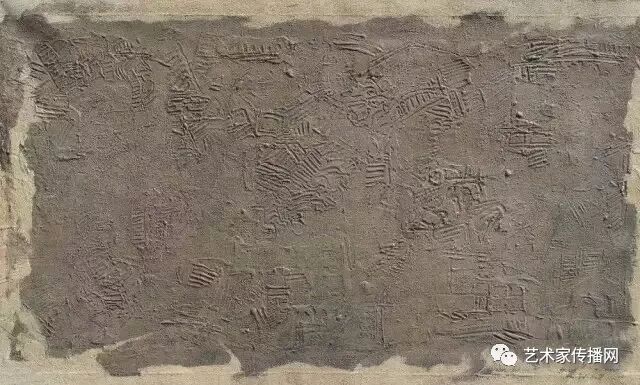 艺术家传播网